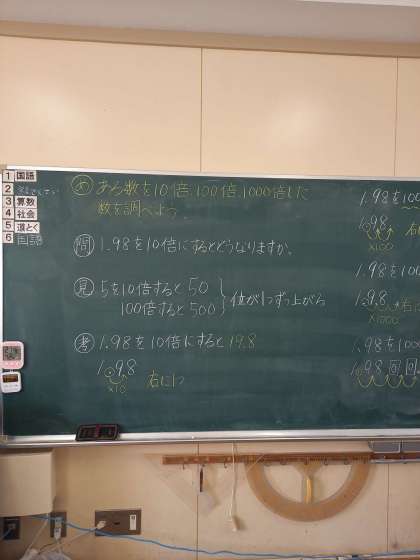 1 国語
2
3 算数
4 社会
5 道とく
6 国語
め ある数を10倍、100倍、1000倍した
数を調べよう。
問 1.98を10倍にするとどうなりますか。
見 5を10倍すると 50
100倍すると 500
位が1つずつ上がる
考 1.98を10倍にすると 19.8
1.98
×10 右に1つ
1.98を100
1.98
×100
右に
1.98を100
1.98
×1000
右に
1.98を100
1.98 0 0